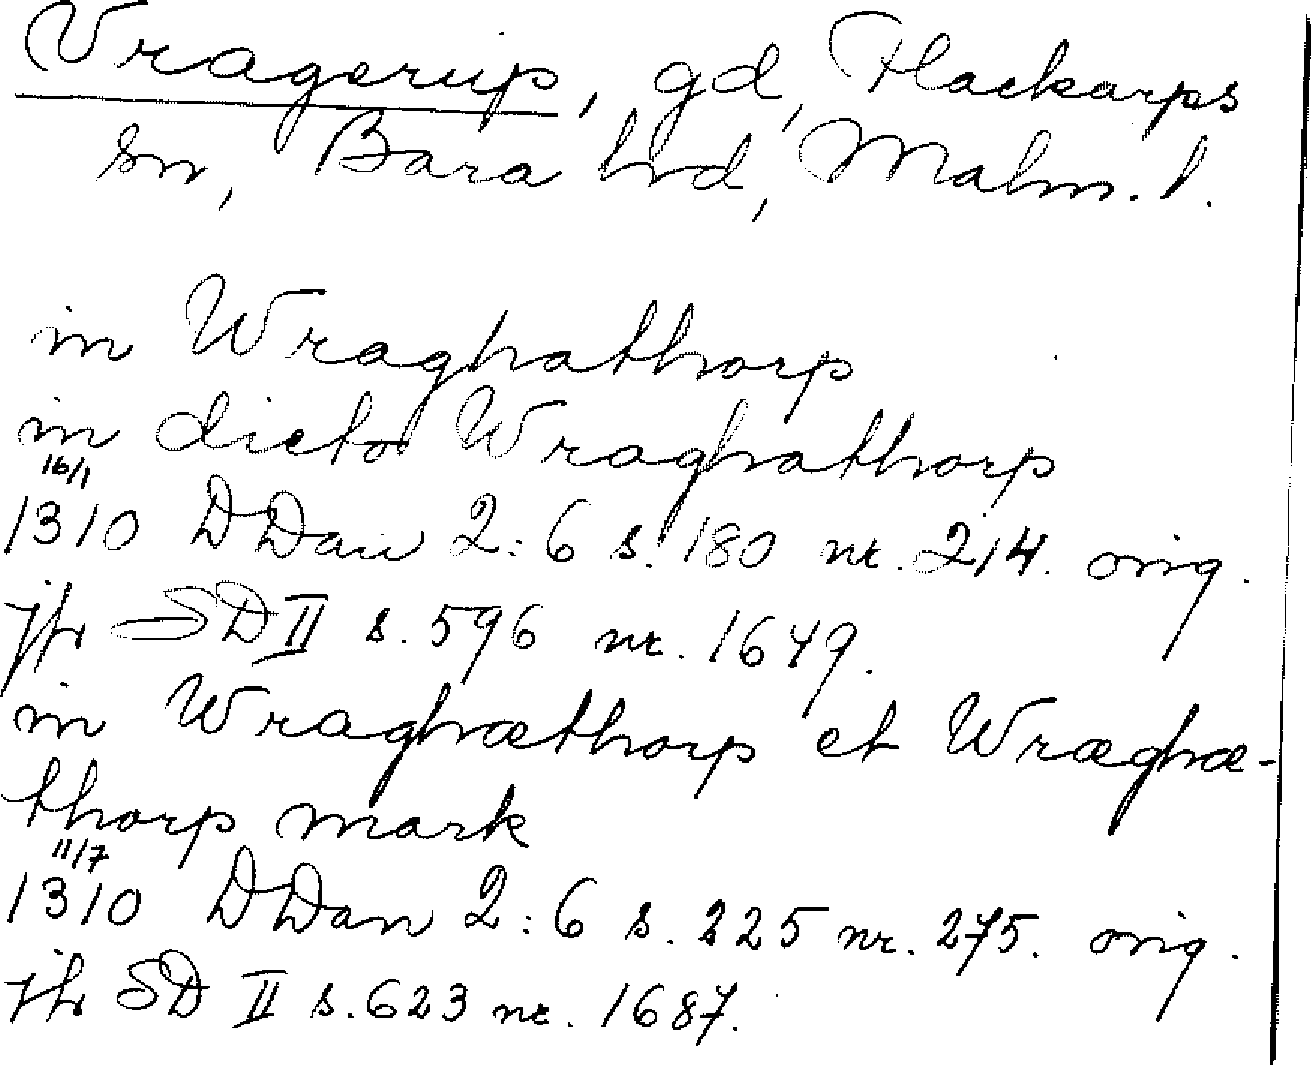 Vragerup, gd, Flackarps
sn, Bara hrd, Malm. l.
in Wraghathorp
in dicto Wraghathorp
16/1
1310 DDan 2:6 s. 180 nr. 214. orig.
jfr SD II s. 596 nr. 1649.
in Wraghæthorp et Wræghæ-
thorp mark
11/7
1310 DDan 2:6 s. 225 nr. 275. orig.
jfr SD II s. 623 nr. 1687.